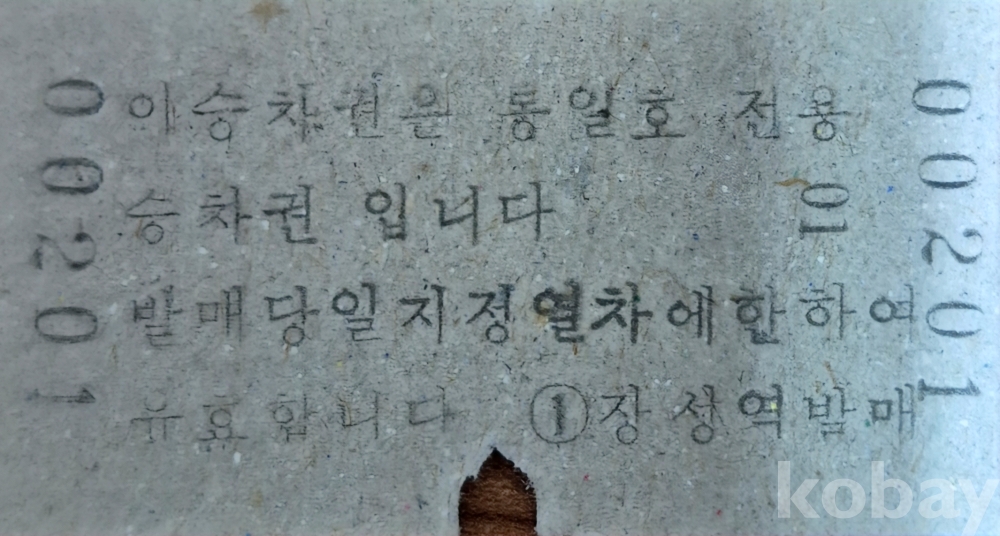 이승차권은 통일호 전용
승차권 입니다
01
발매당일지정열차에한하여
유효합니다 ①장성역발매
00201
00201
kobay